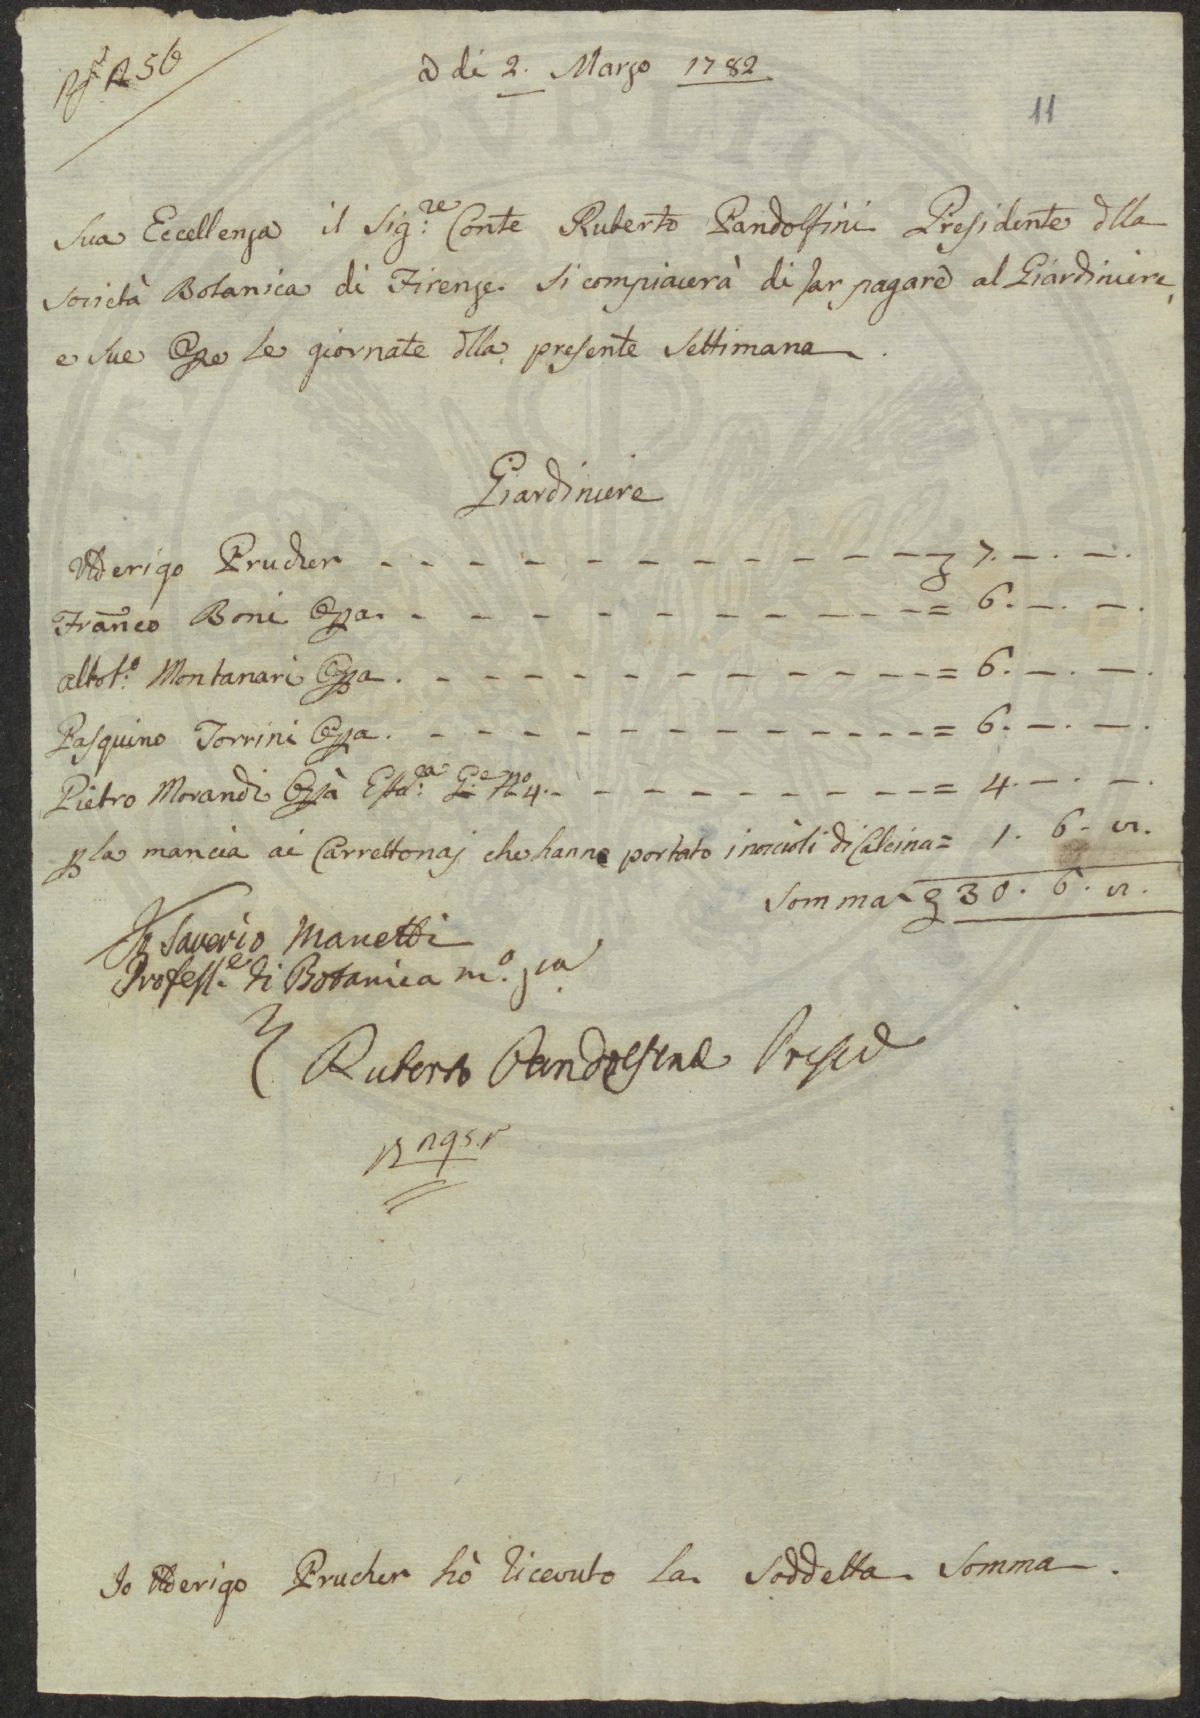 A di 2. Marzo 1782
11
Sua Eccellenza il Sig.re Conte Ruberto Pandolfini Presidente dlla
Società Botanica di Firenze. Si compiacerà di far pagare al Giardiniere,
e sue Ope le giornate dlla presente Settimana.
Giardiniere
Aderigo Prucher 7. — . — .
Franco Boni Opa. = 6. — . — .
Montanari Opa. = 6. — . — .
Pasquino Torrini Opa. = 6. — . — .
Pietro Morandi Opa N.o 4. = 4. — . — .
p la mancia ai Carrettonaj che hanno portato i nocioli di Calcina = 1. 6. 
Somma 30. 6. 
Saverio Manetti
Profess.e di Botanica m.o pa
Ruberto Pandolfini Presid
Io Aderigo Prucher hò Ricevuto la Soddetta Somma.